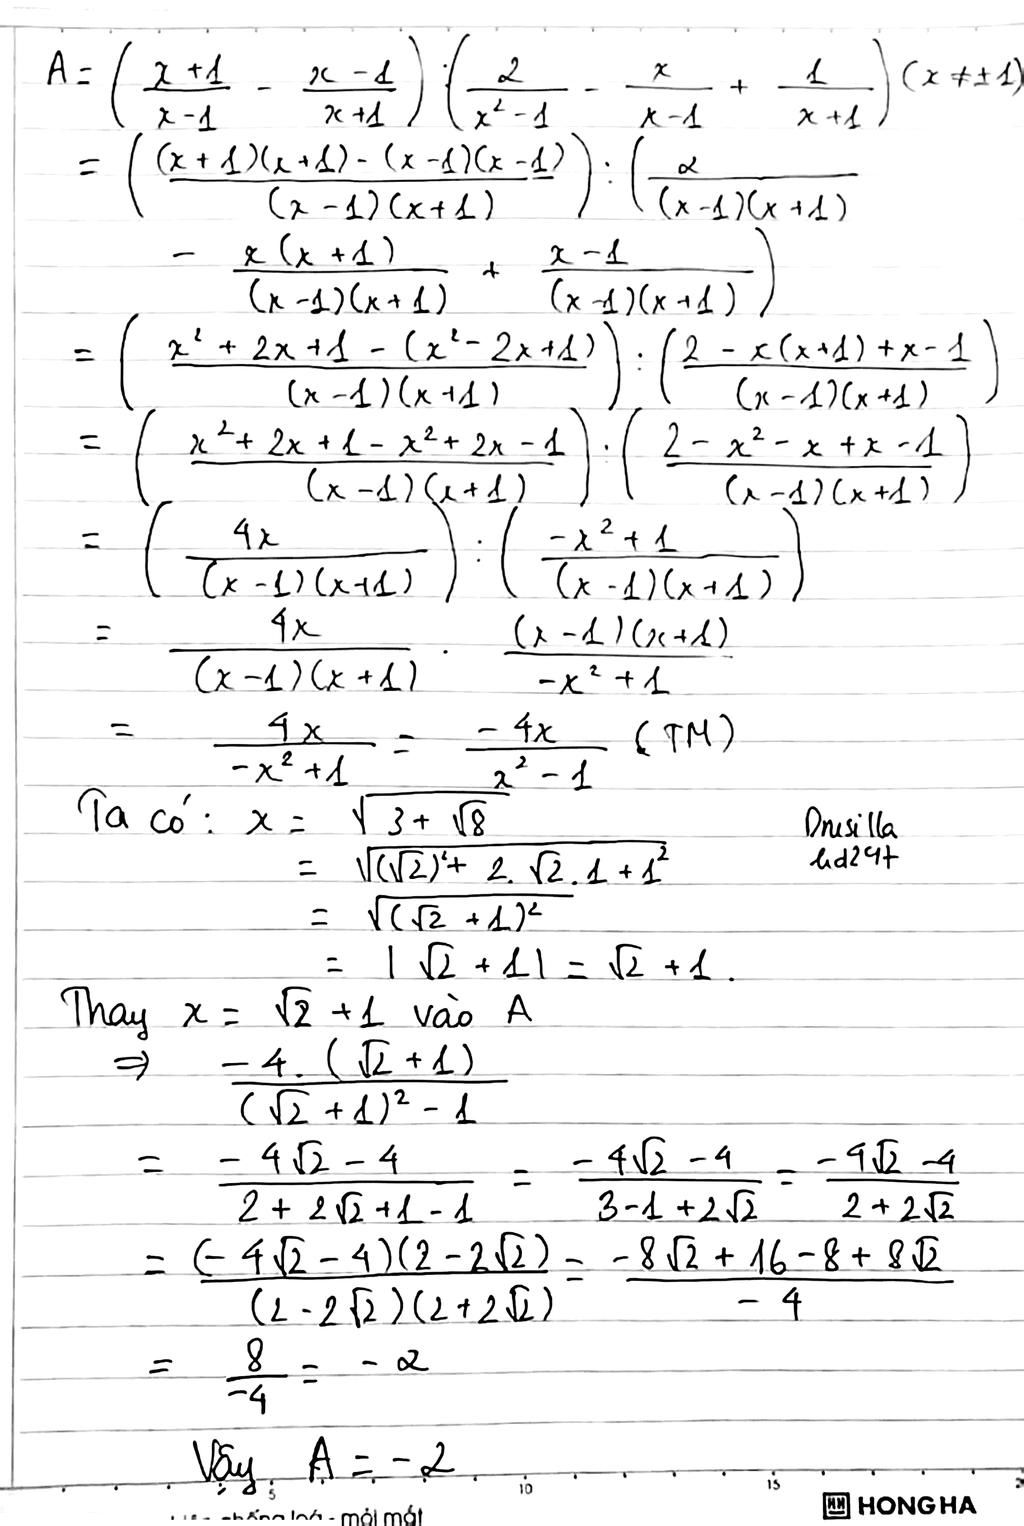 A = ( (x+1)/(x-1) - (x-1)/(x+1) ) : ( 2/(x²-1) - x/(x-1) + 1/(x+1) ) (x ≠ ±1)
= ( ((x+1)(x+1) - (x-1)(x-1))/((x-1)(x+1)) ) : ( 2/((x-1)(x+1))
- x(x+1)/((x-1)(x+1)) + (x-1)/((x-1)(x+1)) )
= ( (x²+2x+1-(x²-2x+1))/((x-1)(x+1)) ) : ( (2-x(x+1)+x-1)/((x-1)(x+1)) )
= ( (x²+2x+1-x²+2x-1)/((x-1)(x+1)) ) : ( (2-x²-x+x-1)/((x-1)(x+1)) )
= ( 4x/((x-1)(x+1)) ) : ( (-x²+1)/((x-1)(x+1)) )
= 4x/((x-1)(x+1)) . ((x-1)(x+1))/(-x²+1)
= 4x/(-x²+1) = -4x/(x²-1) (TM)
Ta có: x = √(3+√8)
Drusilla
= √((√2)²+2.√2.1+1²)
hd247
= √((√2+1)²)
= |√2+1| = √2+1.
Thay x = √2+1 vào A
⇒ (-4.(√2+1))/((√2+1)²-1)
= (-4√2-4)/(2+2√2+1-1) = (-4√2-4)/(3-1+2√2) = (-4√2-4)/(2+2√2)
= ((-4√2-4)(2-2√2))/((2-2√2)(2+2√2)) = (-8√2+16-8+8√2)/(-4)
= 8/(-4) = -2
Vậy A = -2
5 10 15
chống loá - mỏi mắt
HONG HA